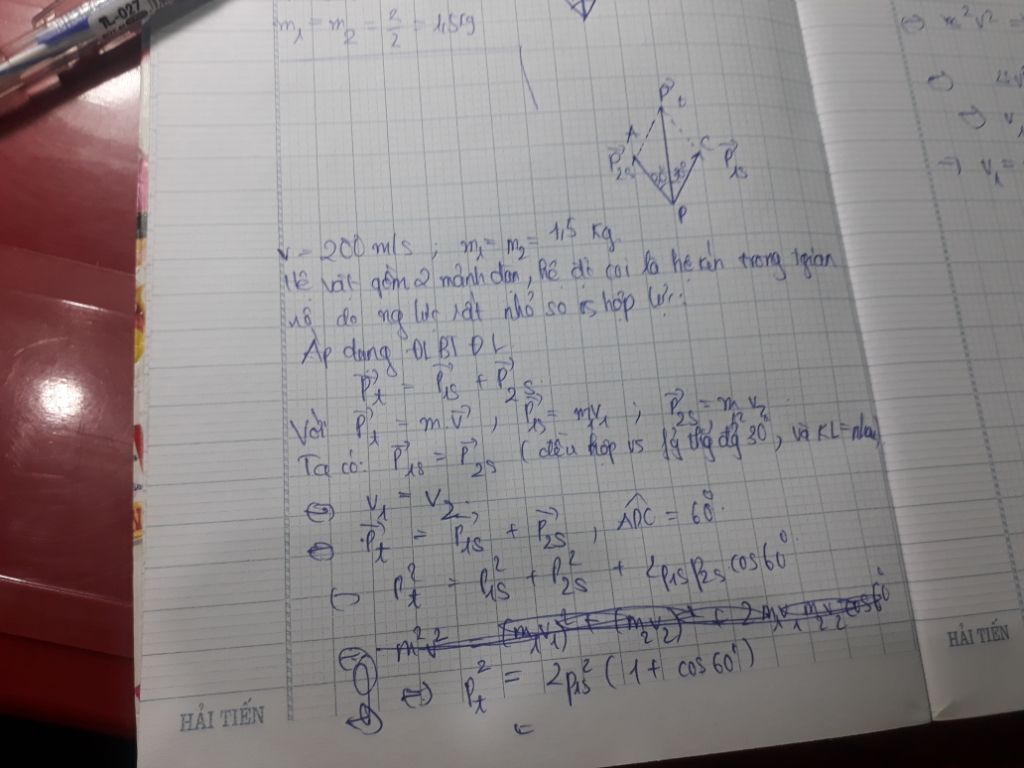 TL-027
m₁ = m₂ = 2/2 = 1,5kg
P⃗t
A
C
P⃗2s
P⃗1s
30° 30°
P
v = 200 m/s ; m₁ = m₂ = 1,5 Kg
Hệ vật gồm 2 mảnh đạn, hệ đc coi là hệ kín trong tgian
nổ do ng lực rất nhỏ so vs hợp lực.
Áp dụng ĐLBTĐL
P⃗t = P⃗1s + P⃗2s
Với P⃗t = m.v⃗ , P⃗1s = m₁v₁ ; P⃗2s = m₂v₂
Ta có: P⃗1s = P⃗2s (đều hợp vs thg đg 30°, và KL = nhau)
⇔ v₁ = v₂
⇔ P⃗t = P⃗1s + P⃗2s , ADC = 60°
Pt² = P1s² + P2s² + 2p1sp2s cos60°
⇔ m²v² = (m₁v₁)² + (m₂v₂)² + 2m₁v₁m₂v₂ cos60°
⇔ Pt² = 2p1s² (1 + cos60°)
HẢI TIẾN
⇔ m²v²
⇔
⇒ v₁
⇒ v₁ =
HẢI TIẾN